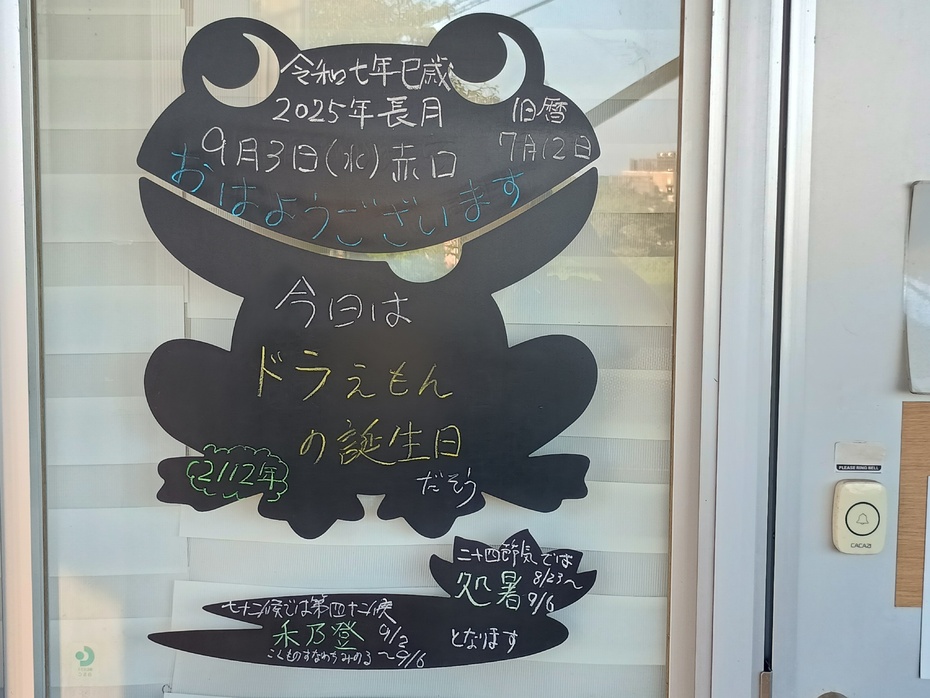 令和七年巳歳
2025年長月
旧暦
7月12日
9月3日(水)赤口
おはようございます
今日は
ドラえもん
の誕生日
2112年
だそう
二十四節気では
処暑
8/23〜
9/6
七十二候では第四十二候
禾乃登
9/2
〜9/6
こくものすなわちみのる
となります
PLEASE RING BELL
CACAZI